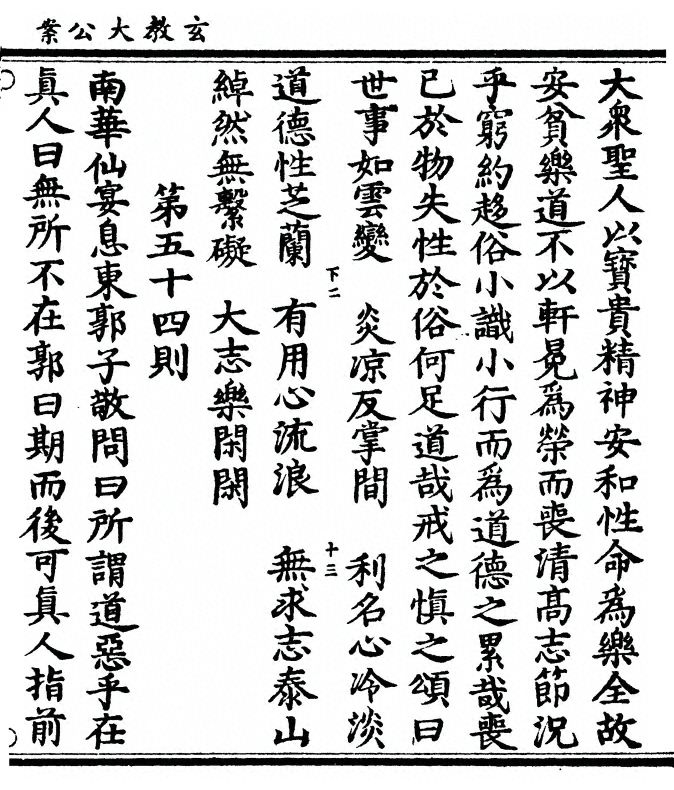 玄教大公案
大衆聖人以寳貴精神安和性命為樂全故
安貧樂道不以軒冕為榮而喪清髙志節況
乎窮約趍俗小識小行而為道德之累哉喪
已於物失性於俗何足道哉戒之慎之頌曰
世事如雲變　炎凉反掌間　利名心冷淡
下二
十三
道德性芝蘭　有用心流浪　無求志泰山
綽然無繫礙　大志樂閑閑
第五十四則
南華仙宴息東郭子敬問曰所謂道惡乎在
眞人曰無所不在郭曰期而後可眞人指前